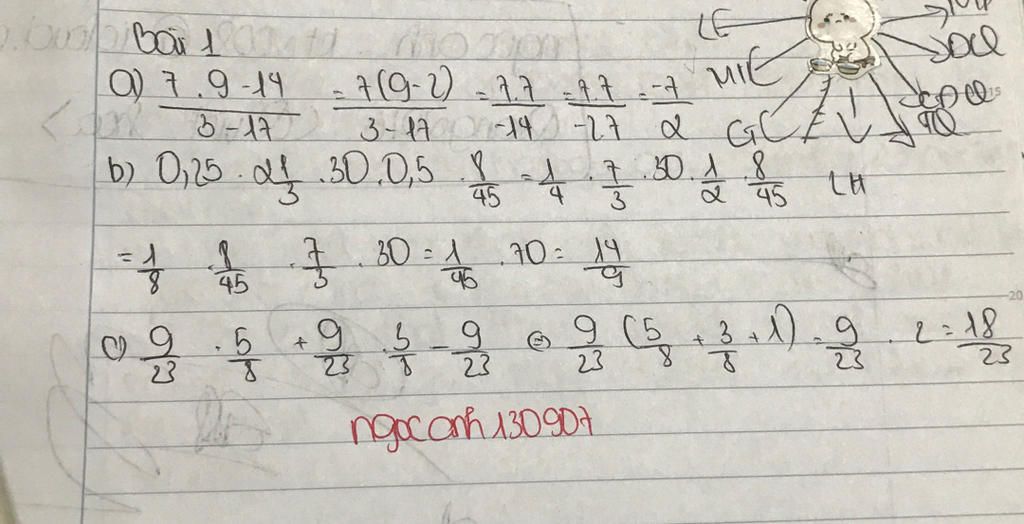 Bài 1
a) 7.9-14/3-17 = 7(9-2)/3-17 = 7.7/-14 = 7.7/-27 = -7/2
b) 0,25 . 2 1/3 . 30 . 0,5 . 8/45 = 1/4 . 7/3 . 30 . 1/2 . 8/45
= 1/8 . 8/45 . 7/3 . 30 = 1/45 . 70 = 14/9
c) 9/23 . 5/8 + 9/23 . 3/8 - 9/23 = 9/23 (5/8 + 3/8 + 1) = 9/23 . 2 = 18/23
ngocanh130907